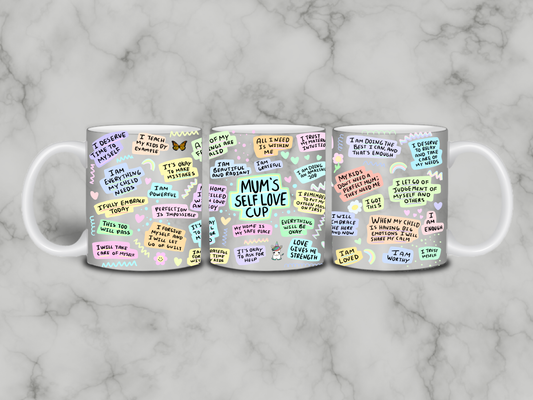 I DESERVE
TIME TO
MYSELF
I TEACH
MY KIDS BY
EXAMPLE
I AM
EVERYTHING
MY CHILD
NEEDS
IT'S OKAY
TO MAKE
MISTAKES
I AM
POWERFUL
I FULLY EMBRACE
TODAY
PERFECTION IS
IMPOSSIBLE
THIS TOO
WILL PASS
I FORGIVE
MYSELF AND
I WILL LET
GO OF GUILT
I WILL TAKE
CARE OF MYSELF
OF MY
ARE
ALL I NEED
IS WITHIN
ME
I TRUST
I AM
BEAUTIFUL
AND RADIANT
I AM
GRATEFUL
I AM DOING
MUM'S
SELF LOVE
CUP
MY HOME IS MY
SAFE PLACE
EVERYTHING
WILL BE
OKAY
IT'S OKAY
TO ASK FOR
HELP
LOVE
GIVES ME
STRENGTH
I AM DOING THE
BEST I CAN, AND
THAT'S ENOUGH
I DESERVE
TO RELAX
AND TAKE
CARE OF
MY NEEDS
MY KIDS
DON'T NEED A
PERFECT MUM,
THEY NEED ME
I LET GO OF
JUDGEMENT OF
MYSELF AND
OTHERS
I GOT
THIS
WHEN MY CHILD
IS HAVING BIG
EMOTIONS I WILL
SHARE MY CALM
I
AM
ENOUGH
I AM
LOVED
I AM
WORTHY
I TRUST
MYSELF